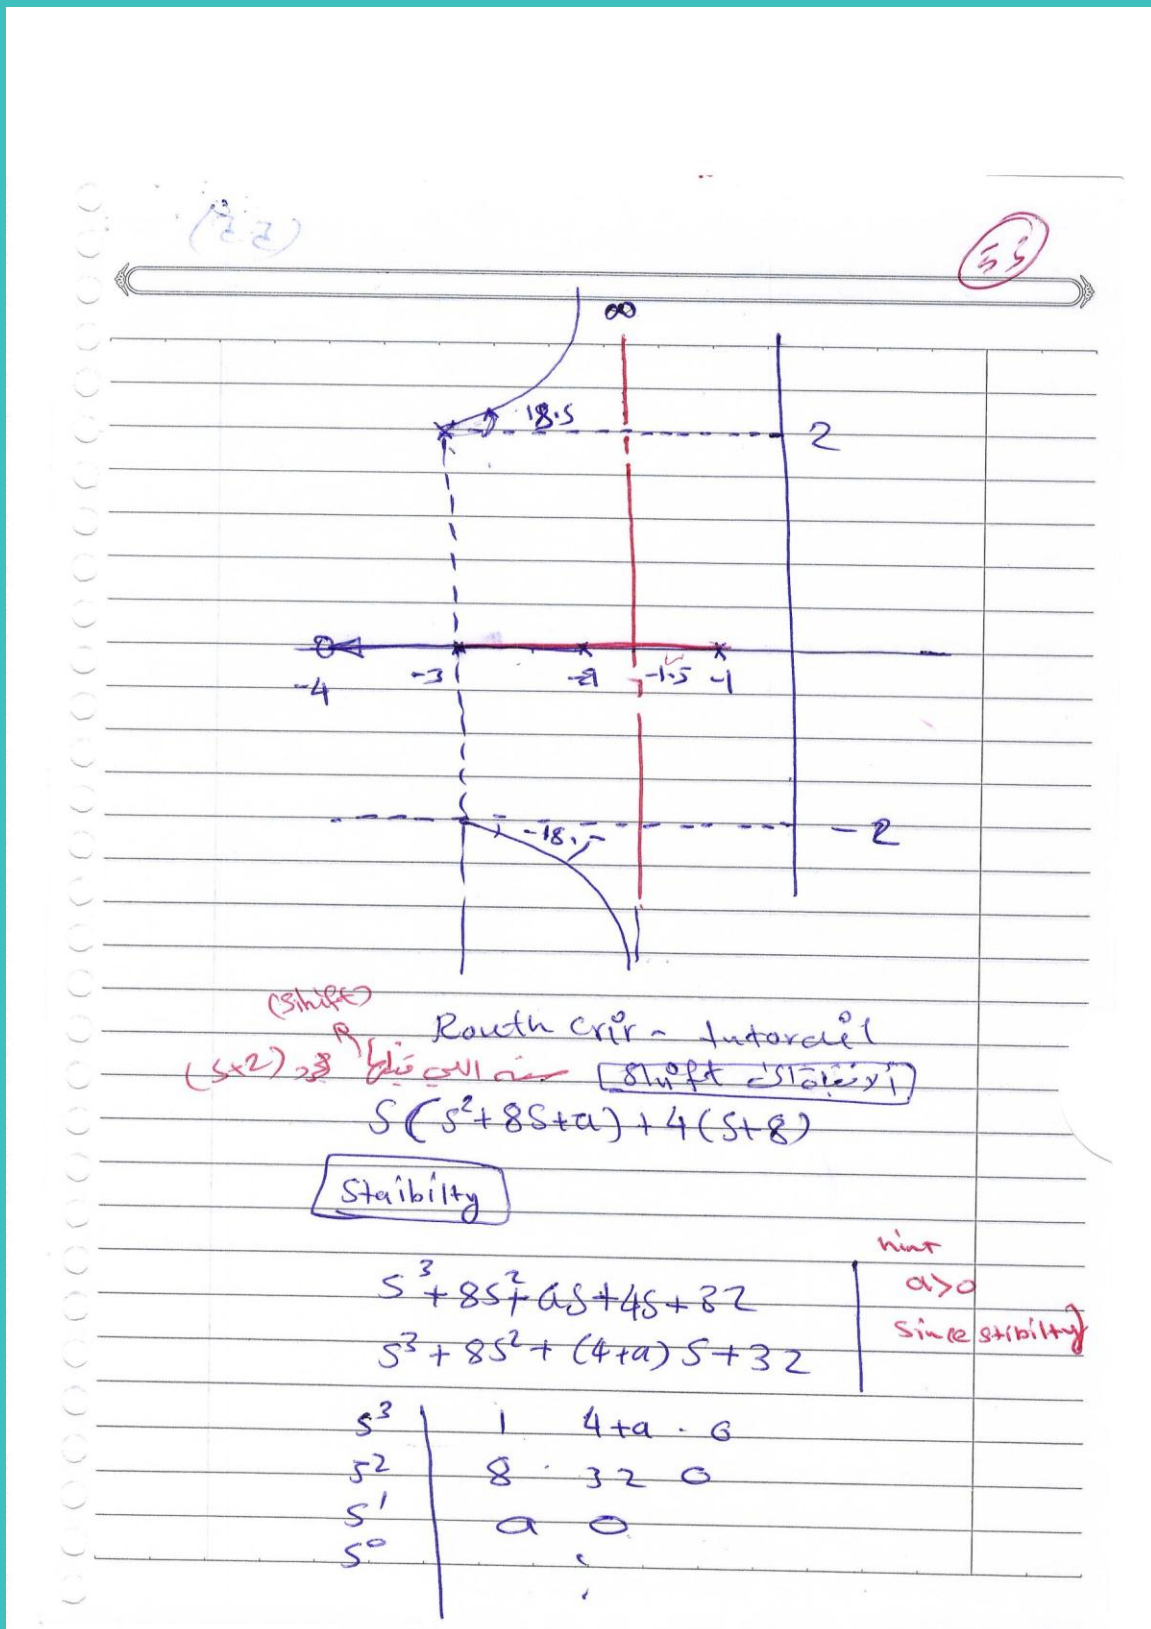 ∞
18.5
2
-4
-3
-1.5
-1
-18.
-2
(Shift)
Routh Crir -
(S+2)
Shift
S(S²+8S+a)+4(S+8)
Staibilty
hint
a>0
Since stibilty
S³+8S²+aS+4S+32
S³+8S²+(4+a)S+32
S³ 1 4+a 0
S² 8 32 0
S¹ a 0
S⁰